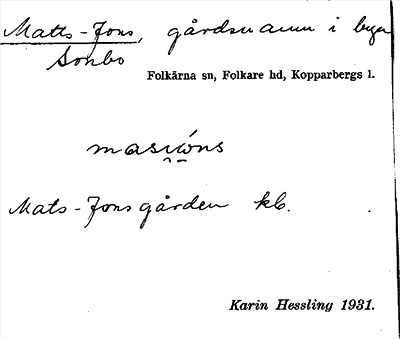 Matts-Jons, gårdsnamn i byn
Sonbo
Folkärna sn, Folkare hd, Kopparbergs l.
masjóns
Mats-Jonsgården kb.
Karin Hessling 1931.